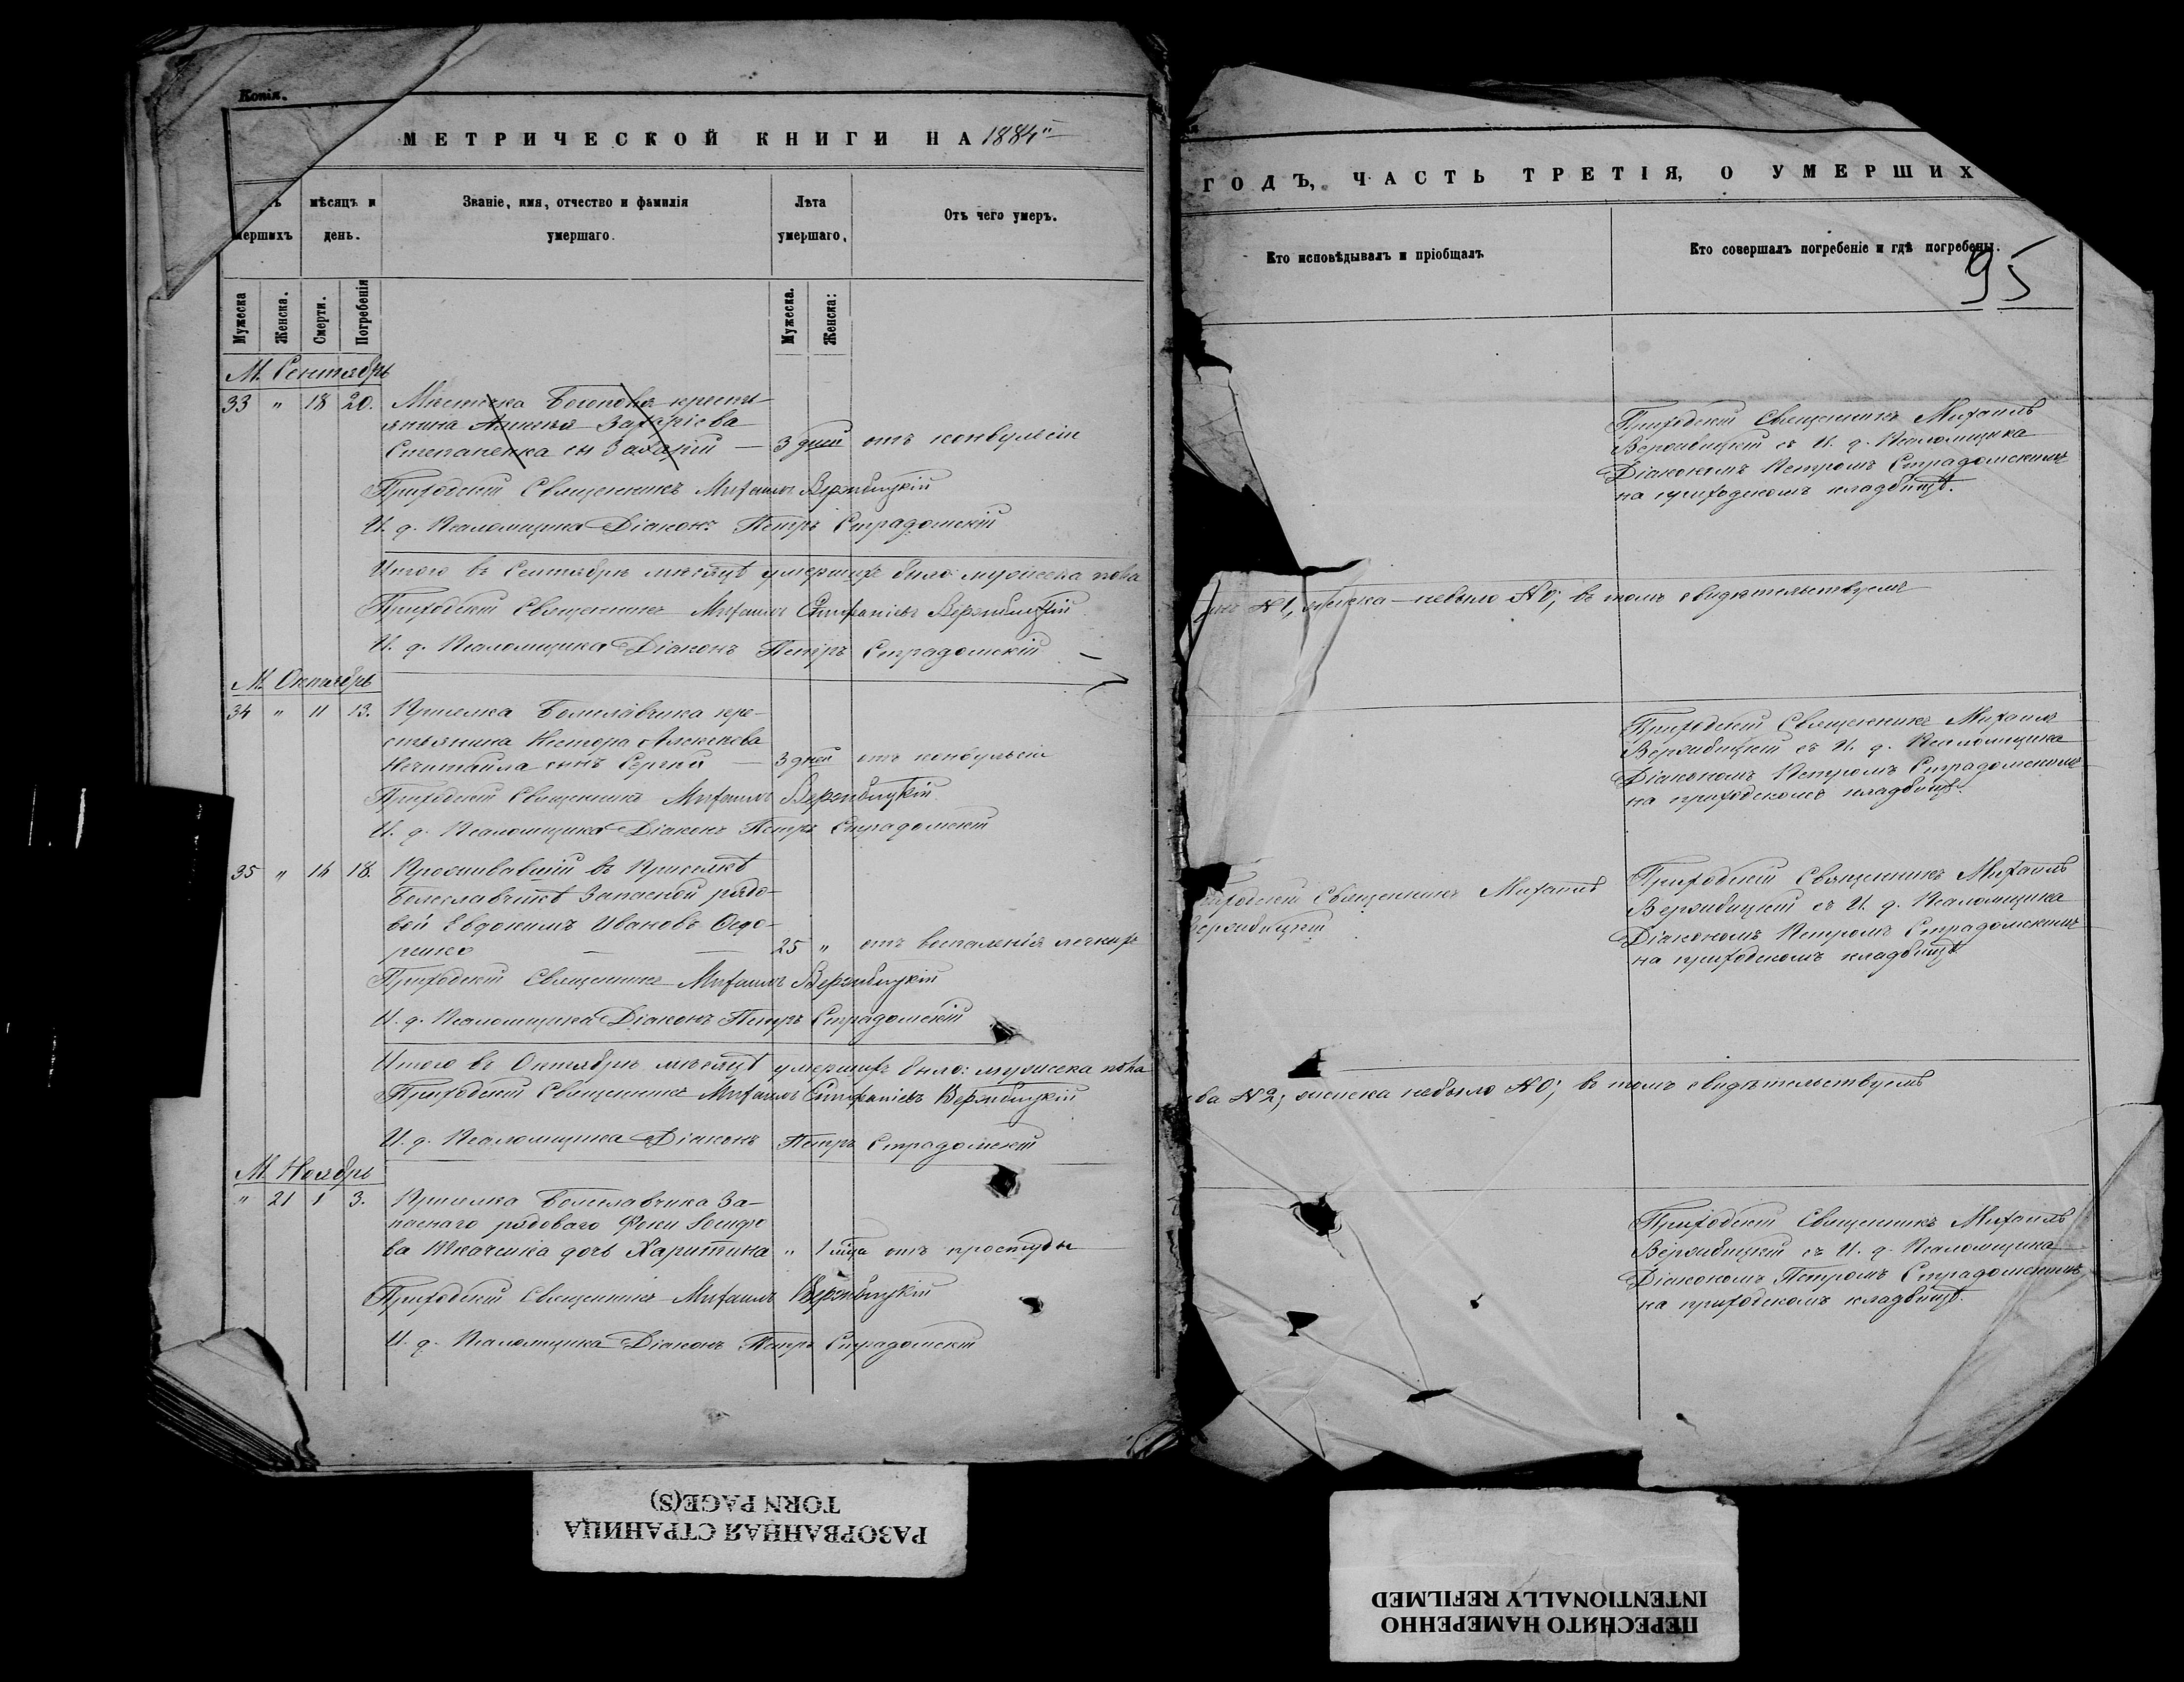 Копія.
МЕТРИЧЕСКОЙ КНИГИ НА 1884
мершихъ
мѣсяцъ и день.
Званіе, имя, отчество и фамилія умершаго.
Лѣта умершаго.
Отъ чего умеръ.
Мужеска
Женска.
Смерти.
Погребенія
Мужеска.
Женска:
М. Сентябрь
33 " 18 20. Местечка Богополя кресть-
янина Захаріева
Степаненка сы Захарій — 3 дней отъ конвульсіи
Приходскій Священникъ Михаилъ Вержбицкій
И. д. Псаломщика Діаконъ Петръ Страдомскій
Итого въ Сентябрѣ мѣсяцѣ умершихъ было: мужеска пола
Приходскій Священникъ Михаилъ Стефаніевъ Вержбицкій
И. д. Псаломщика Діаконъ Петръ Страдомскій
М. Октябрь
34 " 11 13. Приселка Болеславчика кре-
стьянина Нестора Алексѣева
Нечитайла сынъ Сергій — 3 дней отъ конвульсіи
Приходскій Священникъ Михаилъ Вержбицкій
И. д. Псаломщика Діаконъ Петръ Страдомскій
35 " 16 18. Проживавшій въ Приселкѣ
Болеславчикѣ Запасной рядо-
вой Евдокимъ Ивановъ Ѳедо-
ренко — — 25 " отъ воспаленія легкихъ
Приходскій Священникъ Михаилъ Вержбицкій
И. д. Псаломщика Діаконъ Петръ Страдомскій
Итого въ Октябрѣ мѣсяцѣ умершихъ было: мужеска пола
Приходскій Священникъ Михаилъ Стефаніевъ Вержбицкій
И. д. Псаломщика Діаконъ Петръ Страдомскій
М. Ноябрь
" 21 1 3. Приселка Болеславчика За-
паснаго рядоваго Фоки Іосифо
ва Ткаченка дочь Харитина " 1 отъ простуды
Приходскій Священникъ Михаилъ Вержбицкій
И. д. Псаломщика Діаконъ Петръ Страдомскій
ГОДЪ, ЧАСТЬ ТРЕТІЯ, О УМЕРШИХ
Кто исповѣдывалъ и пріобщалъ
Кто совершалъ погребеніе и гдѣ погребены.
95
Приходскій Священникъ Михаилъ
Вержбицкій съ И. д. Псаломщика
Діакономъ Петромъ Страдомскимъ
на приходскомъ кладбищѣ.
№ 1, женска — небыло № 0; въ томъ свидѣтельствуемъ
Приходскій Священникъ Михаилъ
Вержбицкій съ И. д. Псаломщика
Діакономъ Петромъ Страдомскимъ
на приходскомъ кладбищѣ.
Приходскій Священникъ Михаилъ
Вержбицкій
Приходскій Священникъ Михаилъ
Вержбицкій съ И. д. Псаломщика
Діакономъ Петромъ Страдомскимъ
на приходскомъ кладбищѣ
№ 2; женска небыло № 0; въ томъ свидѣтельствуемъ
Приходскій Священникъ Михаилъ
Вержбицкій съ И. д. Псаломщика
Діакономъ Петромъ Страдомскимъ
на приходскомъ кладбищѣ.
РАЗОРВАННАЯ СТРАНИЦА
TORN PAGE(S)
ПЕРЕСНЯТО НАМЕРЕННО
INTENTIONALLY REFILMED